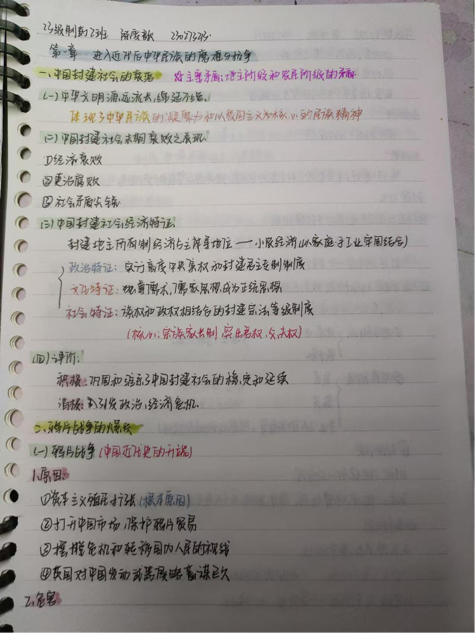 第一章 进入近代后中华民族的磨难与抗争
一、中国封建社会的衰落 主要矛盾：地主阶级和农民阶级的矛盾
(一)中华文明源远流长、绵延不绝、
体现了中华民族的凝聚力和以爱国主义为核心的民族精神
(二)中国封建社会末期衰败之表现
①经济衰败
②吏治腐败
③社会矛盾尖锐
(三)中国封建社会经济特征：
封建地主所有制经济占主导地位——小农经济(以家庭手工业牢固结合)
政治特征：实行高度中央集权的封建君主专制制度
文化特征：独尊儒术，儒家思想成为正统思想
社会特征：族权和政权相结合的封建宗法等级制度
(核心：宗族家长制 突出君权、父权)
(四)评价：
积极：巩固和维系了中国封建社会的稳定和延续
消极：引发政治、经济危机
二、鸦片战争的爆发
(一)鸦片战争(中国近代史的开端)
1.原因
①资本主义殖民扩张(根本原因)
②打开中国市场，保护鸦片贸易
③摆脱危机和转移国内人民的视线
④英国对中国发动战争蓄谋已久
2.危害